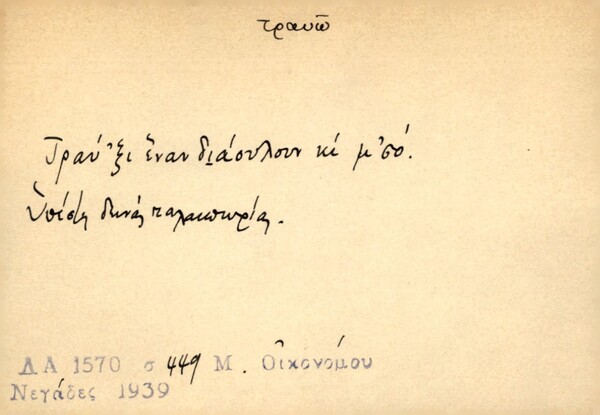 τραυῶ
Τραύ'ξι ἕναν διάουλουν κὶ μ'σό.
Ὑπέστη δεινάς ταλαιπωρίας.
ΔΑ 1570 σ 449 Μ. Οἰκονόμου
Νεγάδες 1939